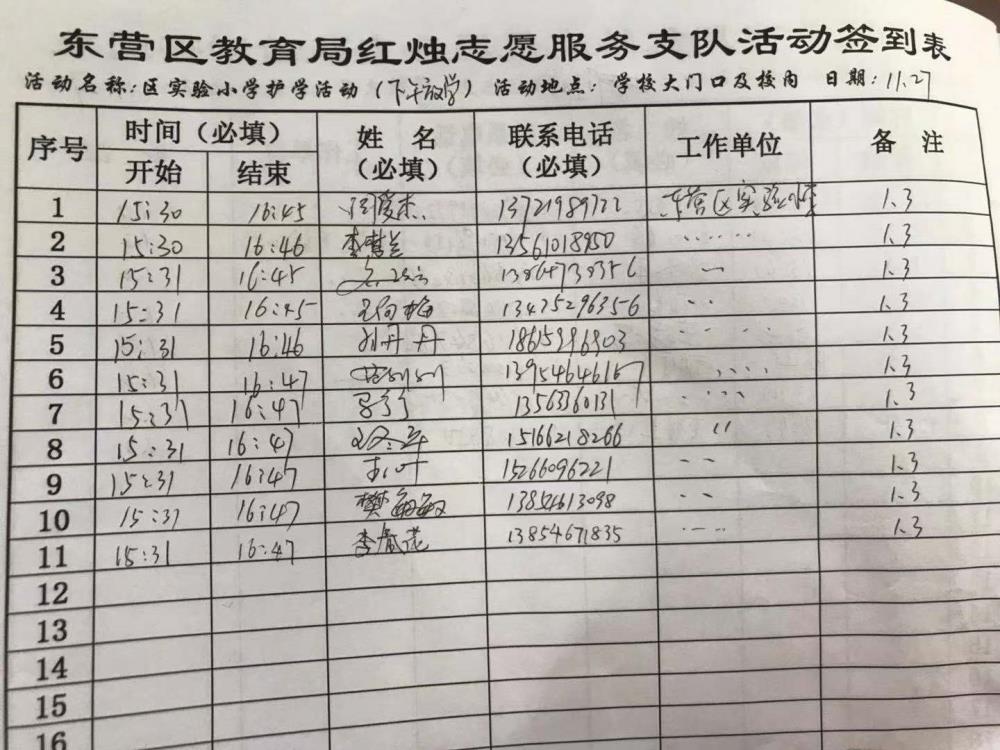 东营区教育局红烛志愿服务支队活动签到表
活动名称:区实验小学护学活动(下午放学) 活动地点:学校大门口及校内 日期:11.27
序号 时间(必填) 姓名(必填) 联系电话(必填) 工作单位 备注
开始 结束
1 15:30 16:45 13721989722 东营区实验小学 1.3
2 15:30 16:46 李慧兰 13561018950 ...... 1.3
3 15:31 16:45 13864738356 1.3
4 15:31 16:45 13475296356 1.3
5 15:31 16:46 刘丹丹 18615396903 1.3
6 15:31 16:47 13954646167 1.3
7 15:31 16:47 13563360131 1.3
8 15:31 16:47 15166218266 〃 1.3
9 15:31 16:47 15266096221 1.3
10 15:31 16:47 樊敏敏 13854613098 1.3
11 15:31 16:47 李春莲 13854671835 1.3
12
13
14
15
16